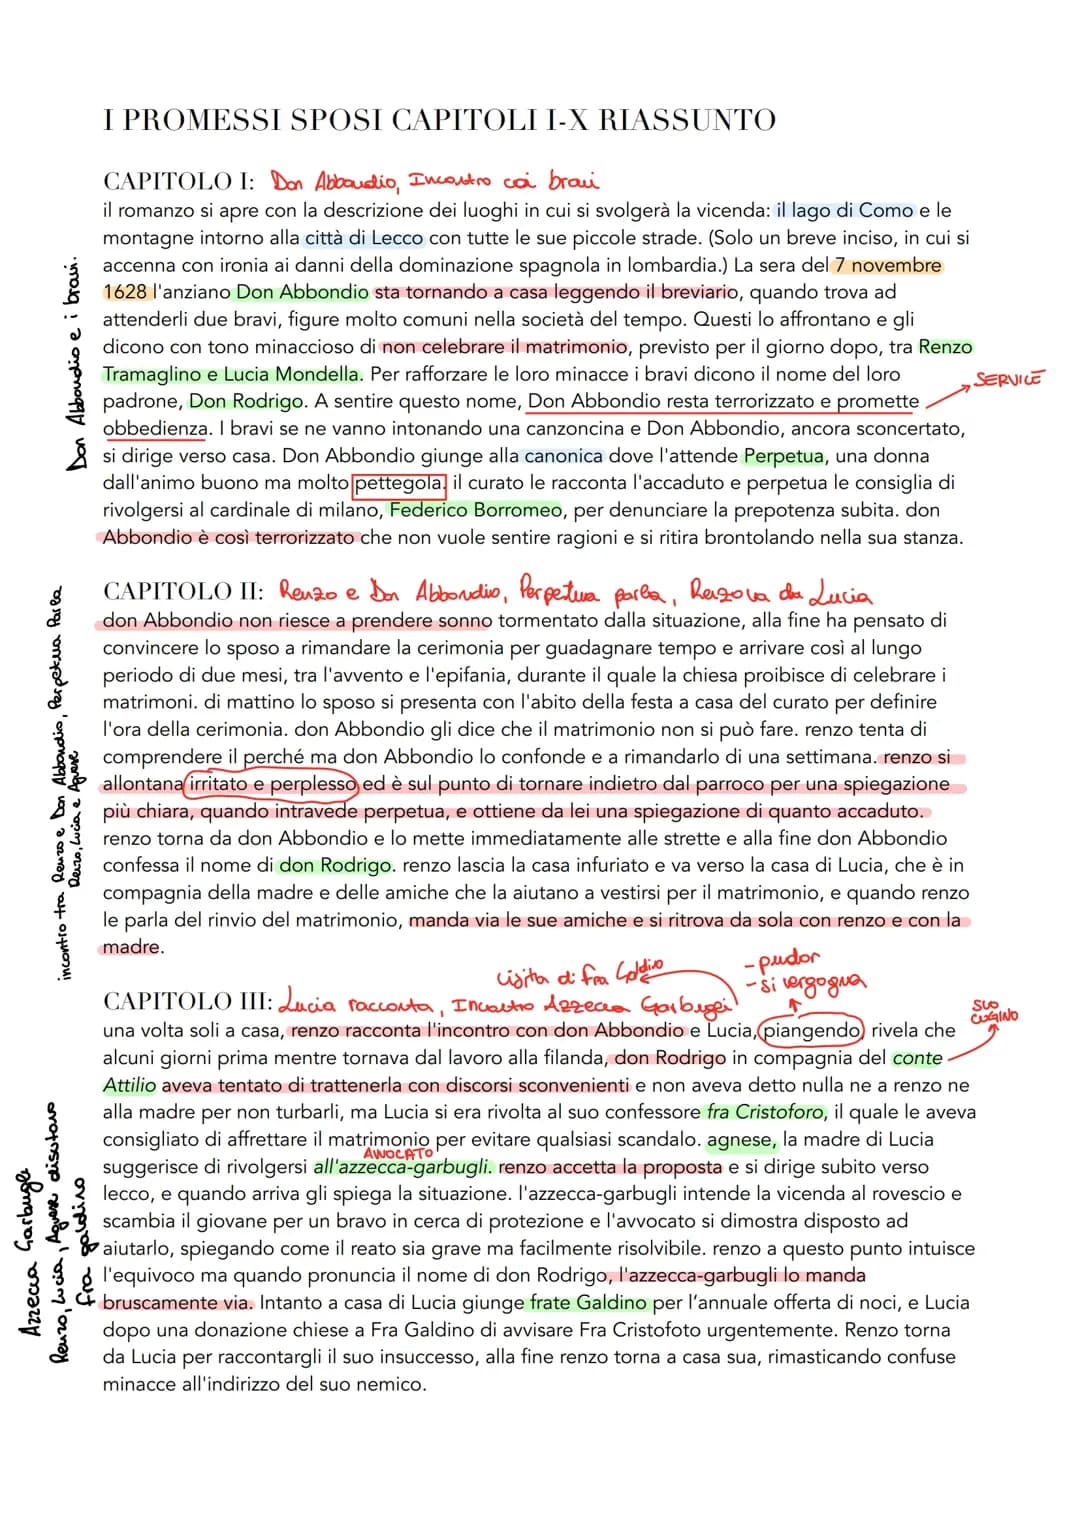 I PROMESSI SPOSI CAPITOLI I-X RIASSUNTO
CAPITOLO I: Don Abbondio, Incontro coi bravi
il romanzo si apre con la descrizione dei luoghi in cui si svolgerà la vicenda: il lago di Como e le
montagne intorno alla città di Lecco con tutte le sue piccole strade. (Solo un breve inciso, in cui si
accenna con ironia ai danni della dominazione spagnola in lombardia.) La sera del 7 novembre
1628 l'anziano Don Abbondio sta tornando a casa leggendo il breviario, quando trova ad
attenderli due bravi, figure molto comuni nella società del tempo. Questi lo affrontano e gli
dicono con tono minaccioso di non celebrare il matrimonio, previsto per il giorno dopo, tra Renzo
Tramaglino e Lucia Mondella. Per rafforzare le loro minacce i bravi dicono il nome del loro
SERVILE
padrone, Don Rodrigo. A sentire questo nome, Don Abbondio resta terrorizzato e promette
obbedienza. I bravi se ne vanno intonando una canzoncina e Don Abbondio, ancora sconcertato,
si dirige verso casa. Don Abbondio giunge alla canonica dove l'attende Perpetua, una donna
dall'animo buono ma molto pettegola. il curato le racconta l'accaduto e perpetua le consiglia di
rivolgersi al cardinale di milano, Federico Borromeo, per denunciare la prepotenza subita. don
Abbondio è così terrorizzato che non vuole sentire ragioni e si ritira brontolando nella sua stanza.
Don Abbondio e i bravi.
CAPITOLO II: Renzo e Don Abbondio, Perpetua parla, Renzo va da Lucia
don Abbondio non riesce a prendere sonno tormentato dalla situazione, alla fine ha pensato di
convincere lo sposo a rimandare la cerimonia per guadagnare tempo e arrivare così al lungo
periodo di due mesi, tra l'avvento e l'epifania, durante il quale la chiesa proibisce di celebrare i
matrimoni. di mattino lo sposo si presenta con l'abito della festa a casa del curato per definire
l'ora della cerimonia. don Abbondio gli dice che il matrimonio non si può fare. renzo tenta di
comprendere il perché ma don Abbondio lo confonde e a rimandarlo di una settimana. renzo si
allontana irritato e perplesso ed è sul punto di tornare indietro dal parroco per una spiegazione
più chiara, quando intravede perpetua, e ottiene da lei una spiegazione di quanto accaduto.
renzo torna da don Abbondio e lo mette immediatamente alle strette e alla fine don Abbondio
confessa il nome di don Rodrigo. renzo lascia la casa infuriato e va verso la casa di Lucia, che è in
compagnia della madre e delle amiche che la aiutano a vestirsi per il matrimonio, e quando renzo
le parla del rinvio del matrimonio, manda via le sue amiche e si ritrova da sola con renzo e con la
madre.
incontro tra Renzo e Don Abbondio, Perpetua Parla
Renzo, Lucia e Agnese
visita di fra Galdino
-pudor
-si vergogna
CAPITOLO III: Lucia racconta, Incontro Azzecca Garbugli
SUO
CUGINO
una volta soli a casa, renzo racconta l'incontro con don Abbondio e Lucia, piangendo, rivela che
alcuni giorni prima mentre tornava dal lavoro alla filanda, don Rodrigo in compagnia del conte
Attilio aveva tentato di trattenerla con discorsi sconvenienti e non aveva detto nulla ne a renzo ne
alla madre per non turbarli, ma Lucia si era rivolta al suo confessore fra Cristoforo, il quale le aveva
consigliato di affrettare il matrimonio per evitare qualsiasi scandalo. agnese, la madre di Lucia
AVVOCATO
suggerisce di rivolgersi all'azzecca-garbugli. renzo accetta la proposta e si dirige subito verso
lecco, e quando arriva gli spiega la situazione. l'azzecca-garbugli intende la vicenda al rovescio e
scambia il giovane per un bravo in cerca di protezione e l'avvocato si dimostra disposto ad
aiutarlo, spiegando come il reato sia grave ma facilmente risolvibile. renzo a questo punto intuisce
l'equivoco ma quando pronuncia il nome di don Rodrigo, l'azzecca-garbugli lo manda
bruscamente via. Intanto a casa di Lucia giunge frate Galdino per l'annuale offerta di noci, e Lucia
dopo una donazione chiese a Fra Galdino di avvisare Fra Cristofoto urgentemente. Renzo torna
da Lucia per raccontargli il suo insuccesso, alla fine renzo torna a casa sua, rimasticando confuse
minacce all'indirizzo del suo nemico.
Azzecca Garbugli
Renzo, Lucia, Agnese discutono
fra galdino